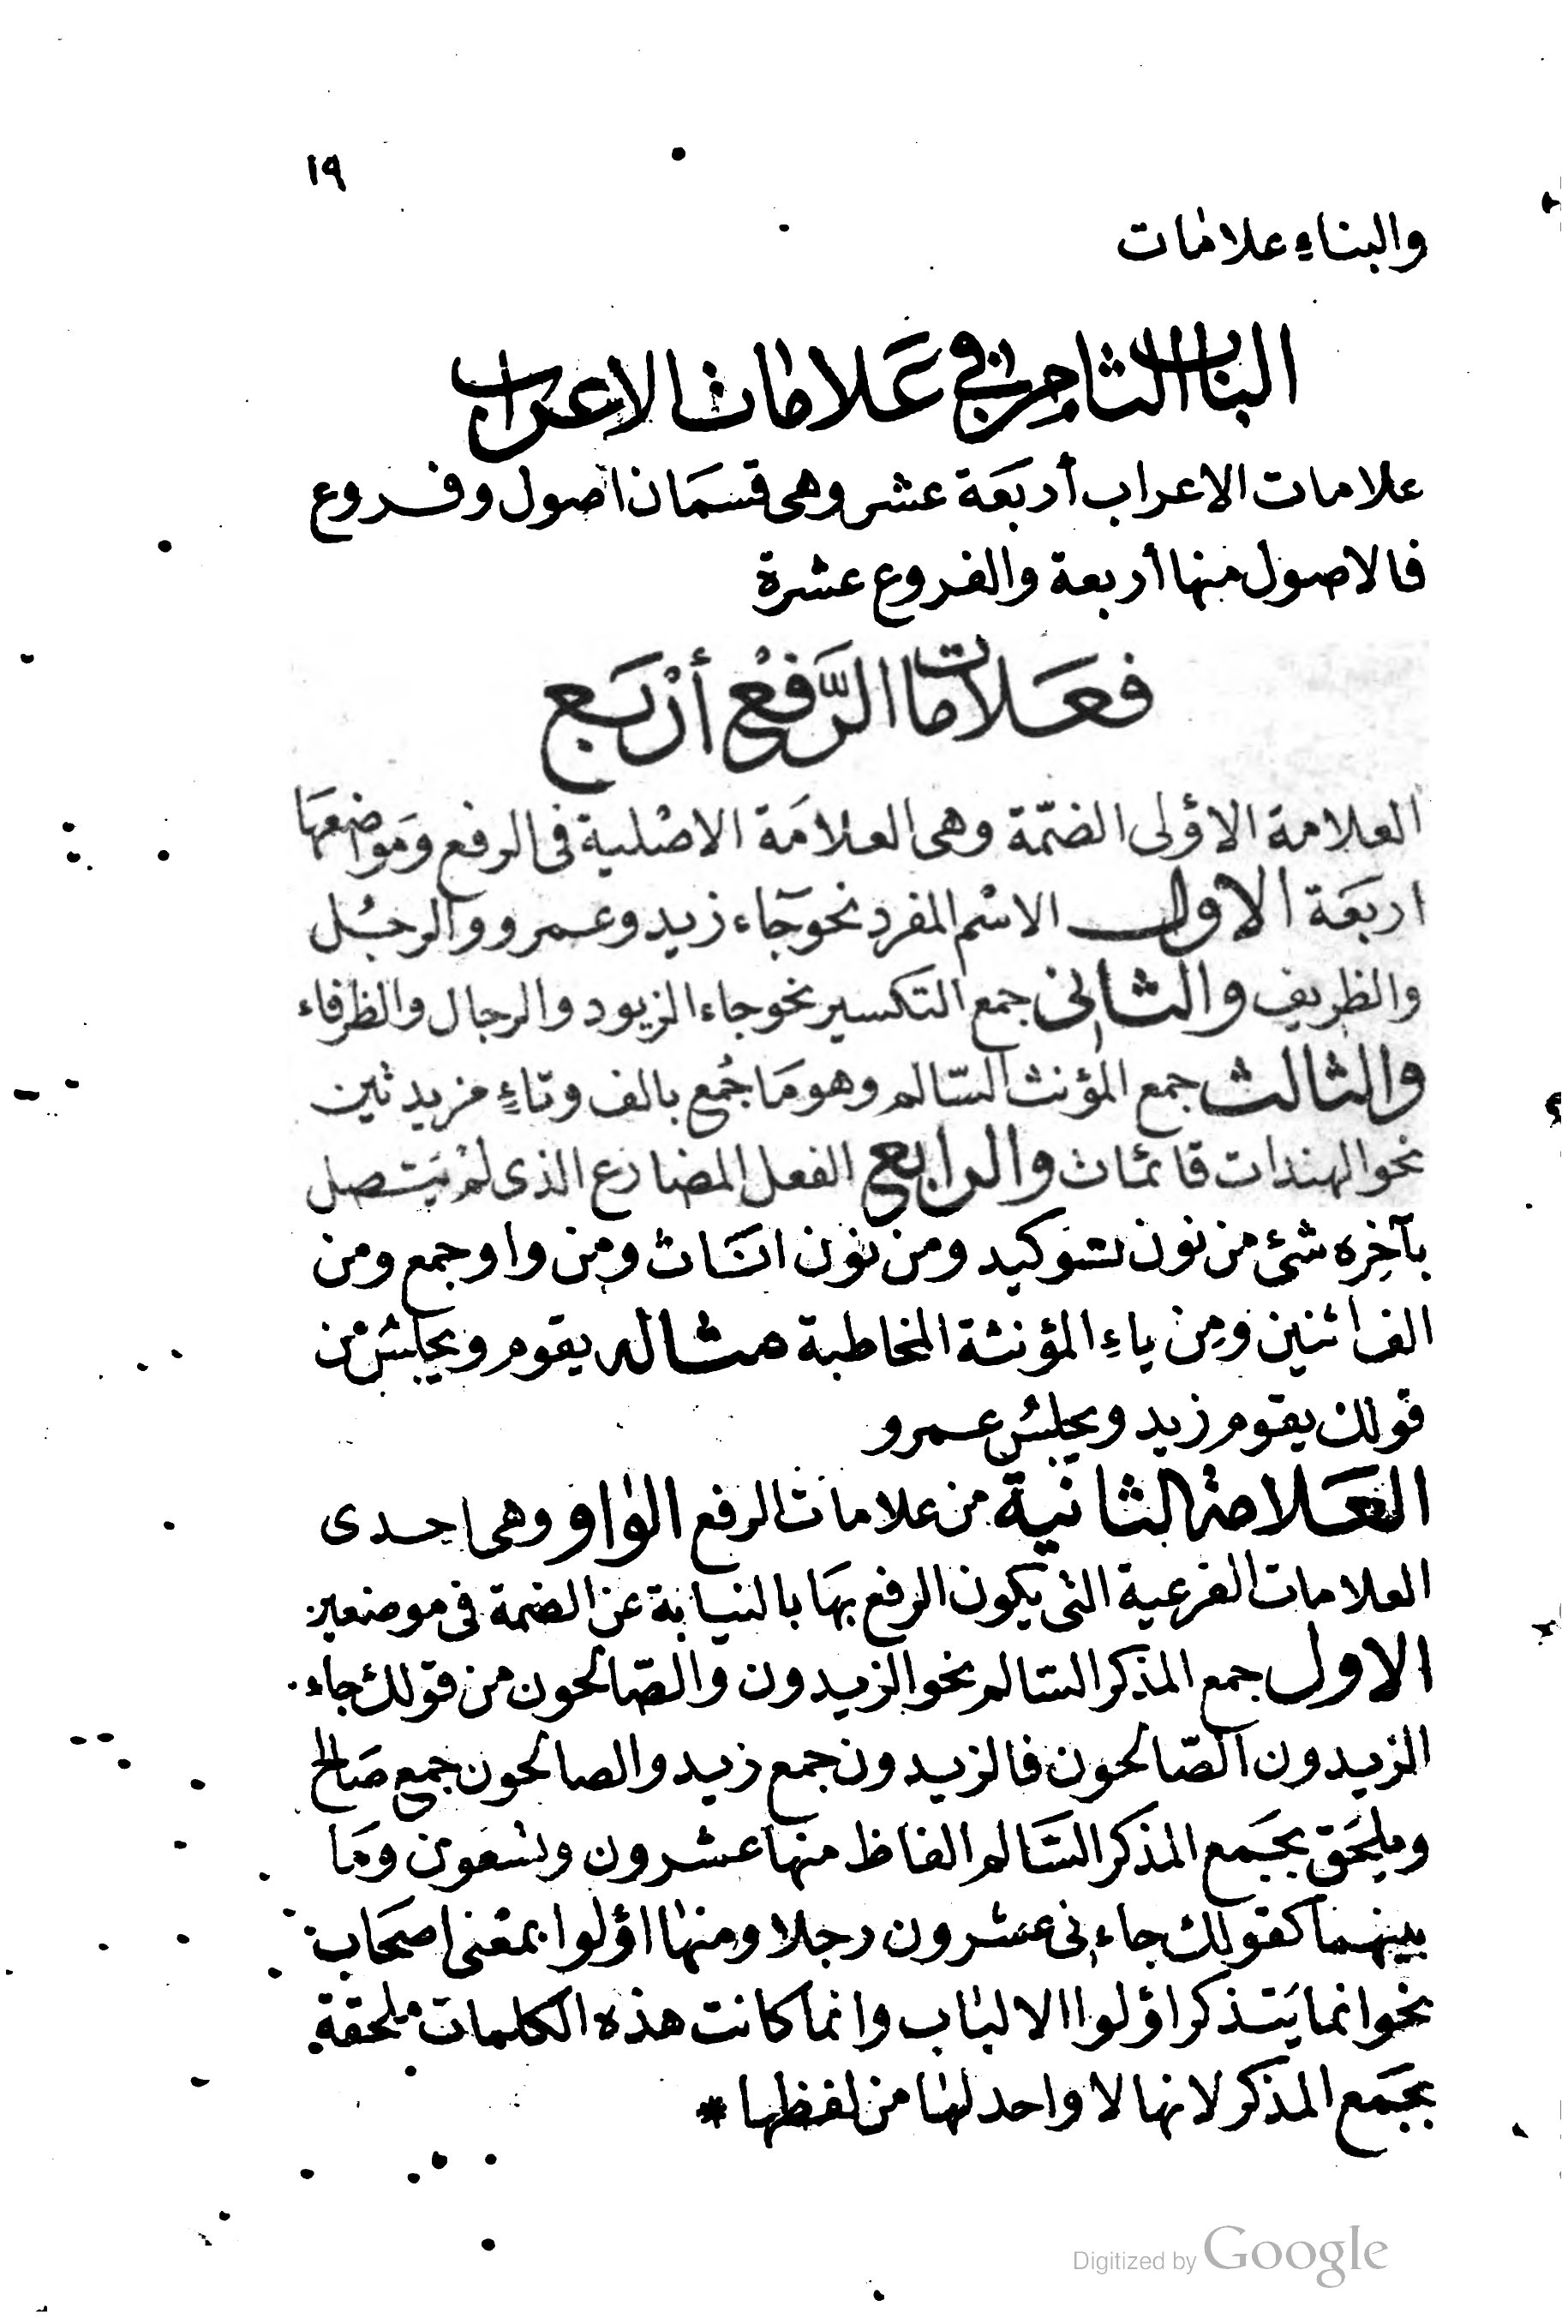 ١٩
والبناءِ علامات
الباب الثامن في عَلامات الاعراب
علامات الاعراب أربَعَة عشر وهى قسمَان اصول وفروع
فالاصول منها أربعة والفروع عشرة
فعَلامات الرَّفعْ أرْبَع
العلامة الاؤلى الضمّة وهى العلامَة الاصْلية فى الرفع ومَواضعهَا
اربعَة الاول الاسْم المفرد نحو جآء زيد وعمرو والرجُل
والظريف والثانى جمع التكسير نحو جاء الزيود والرجال والظرفاء
والثالث جمع المؤنث السّالم وهو مَا جُمع بالف وتاءٍ مزيدتين
نحو الهندات قائمات والرابع الفعل المضارع الذى لمْ يَتصل
بآخِره شئ من نون توكيد ومن نون اناث ومن واو جمع ومن
الف اثنين ومِن ياءِ المؤنثة المخاطبة مثاله يقوم ويجلسُ من
قولك يقوم زيد ويجلسُ عمرو
العَلامة الثانية من علامات الرفع الواو وهى احدى
العلامات الفرعية التى يكون الرفع بهَا بالنيابة عن الضمة فى موضعين
الاول جمع المذكر السّالم نحو الزيدون والصّالحون من قولك جاء
الزيدون الصّالحون فالزيدون جمع زيد والصالحون جمع صَالح
ويلحَق بجَمع المذكر السَّالم الفاظ منها عشرون وتسْعون ومَا
بينهما كقولك جاءنى عشرون رجلا ومنها اؤلوا بمعْنى اصحَاب
نحو انما يَتذكر اؤلوا الالباب وانما كانت هذه الكلمات ملحقة
بجَمع المذكر لانها لا واحد لها من لفظها *
Digitized by Google